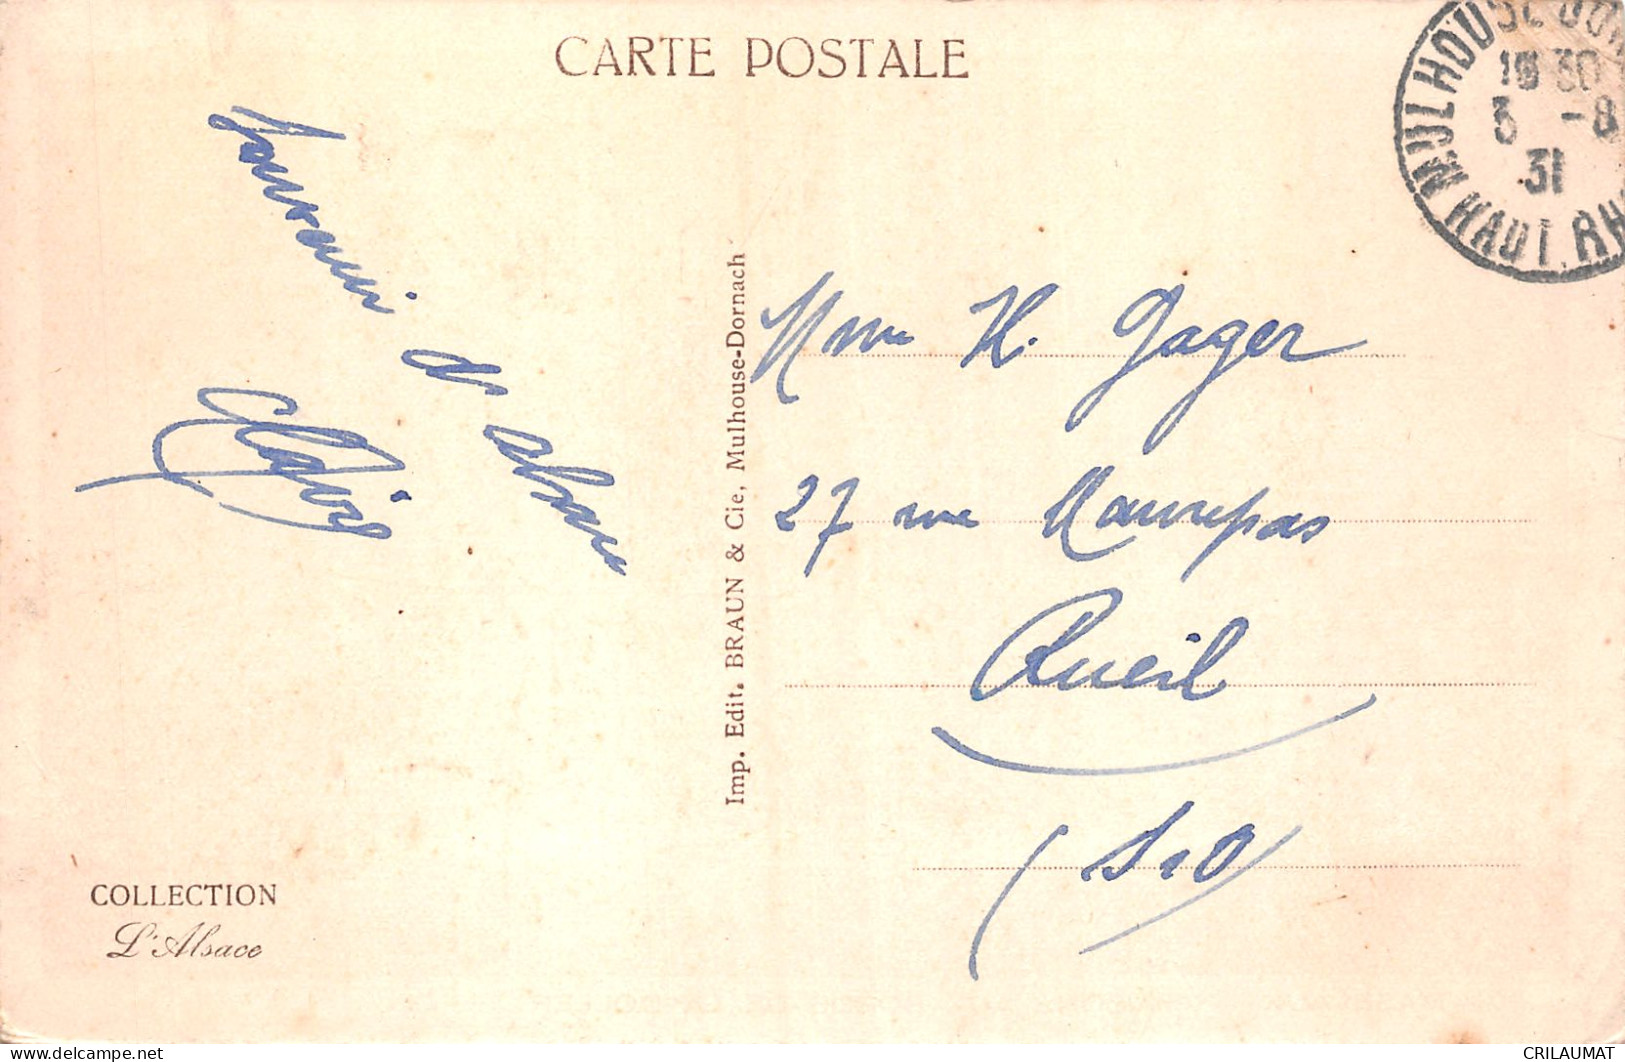 CARTE POSTALE
MULHOUSE
30
3 -8
31
HAUT RH
Souvenir
Imp. Edit. BRAUN & Cie, Mulhouse-Dornach
Mme K. Gager
27 rue Maurepas
Rueil
(S&O)
COLLECTION
L'Alsace
delcampe.net
CRILAUMAT